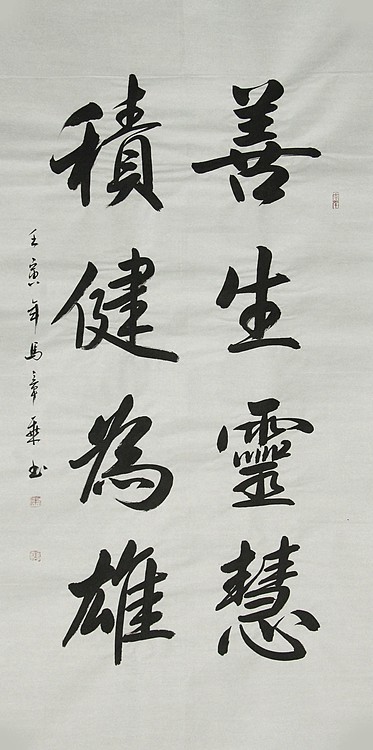 善生靈慧
積健為雄
壬寅年馬章乘书